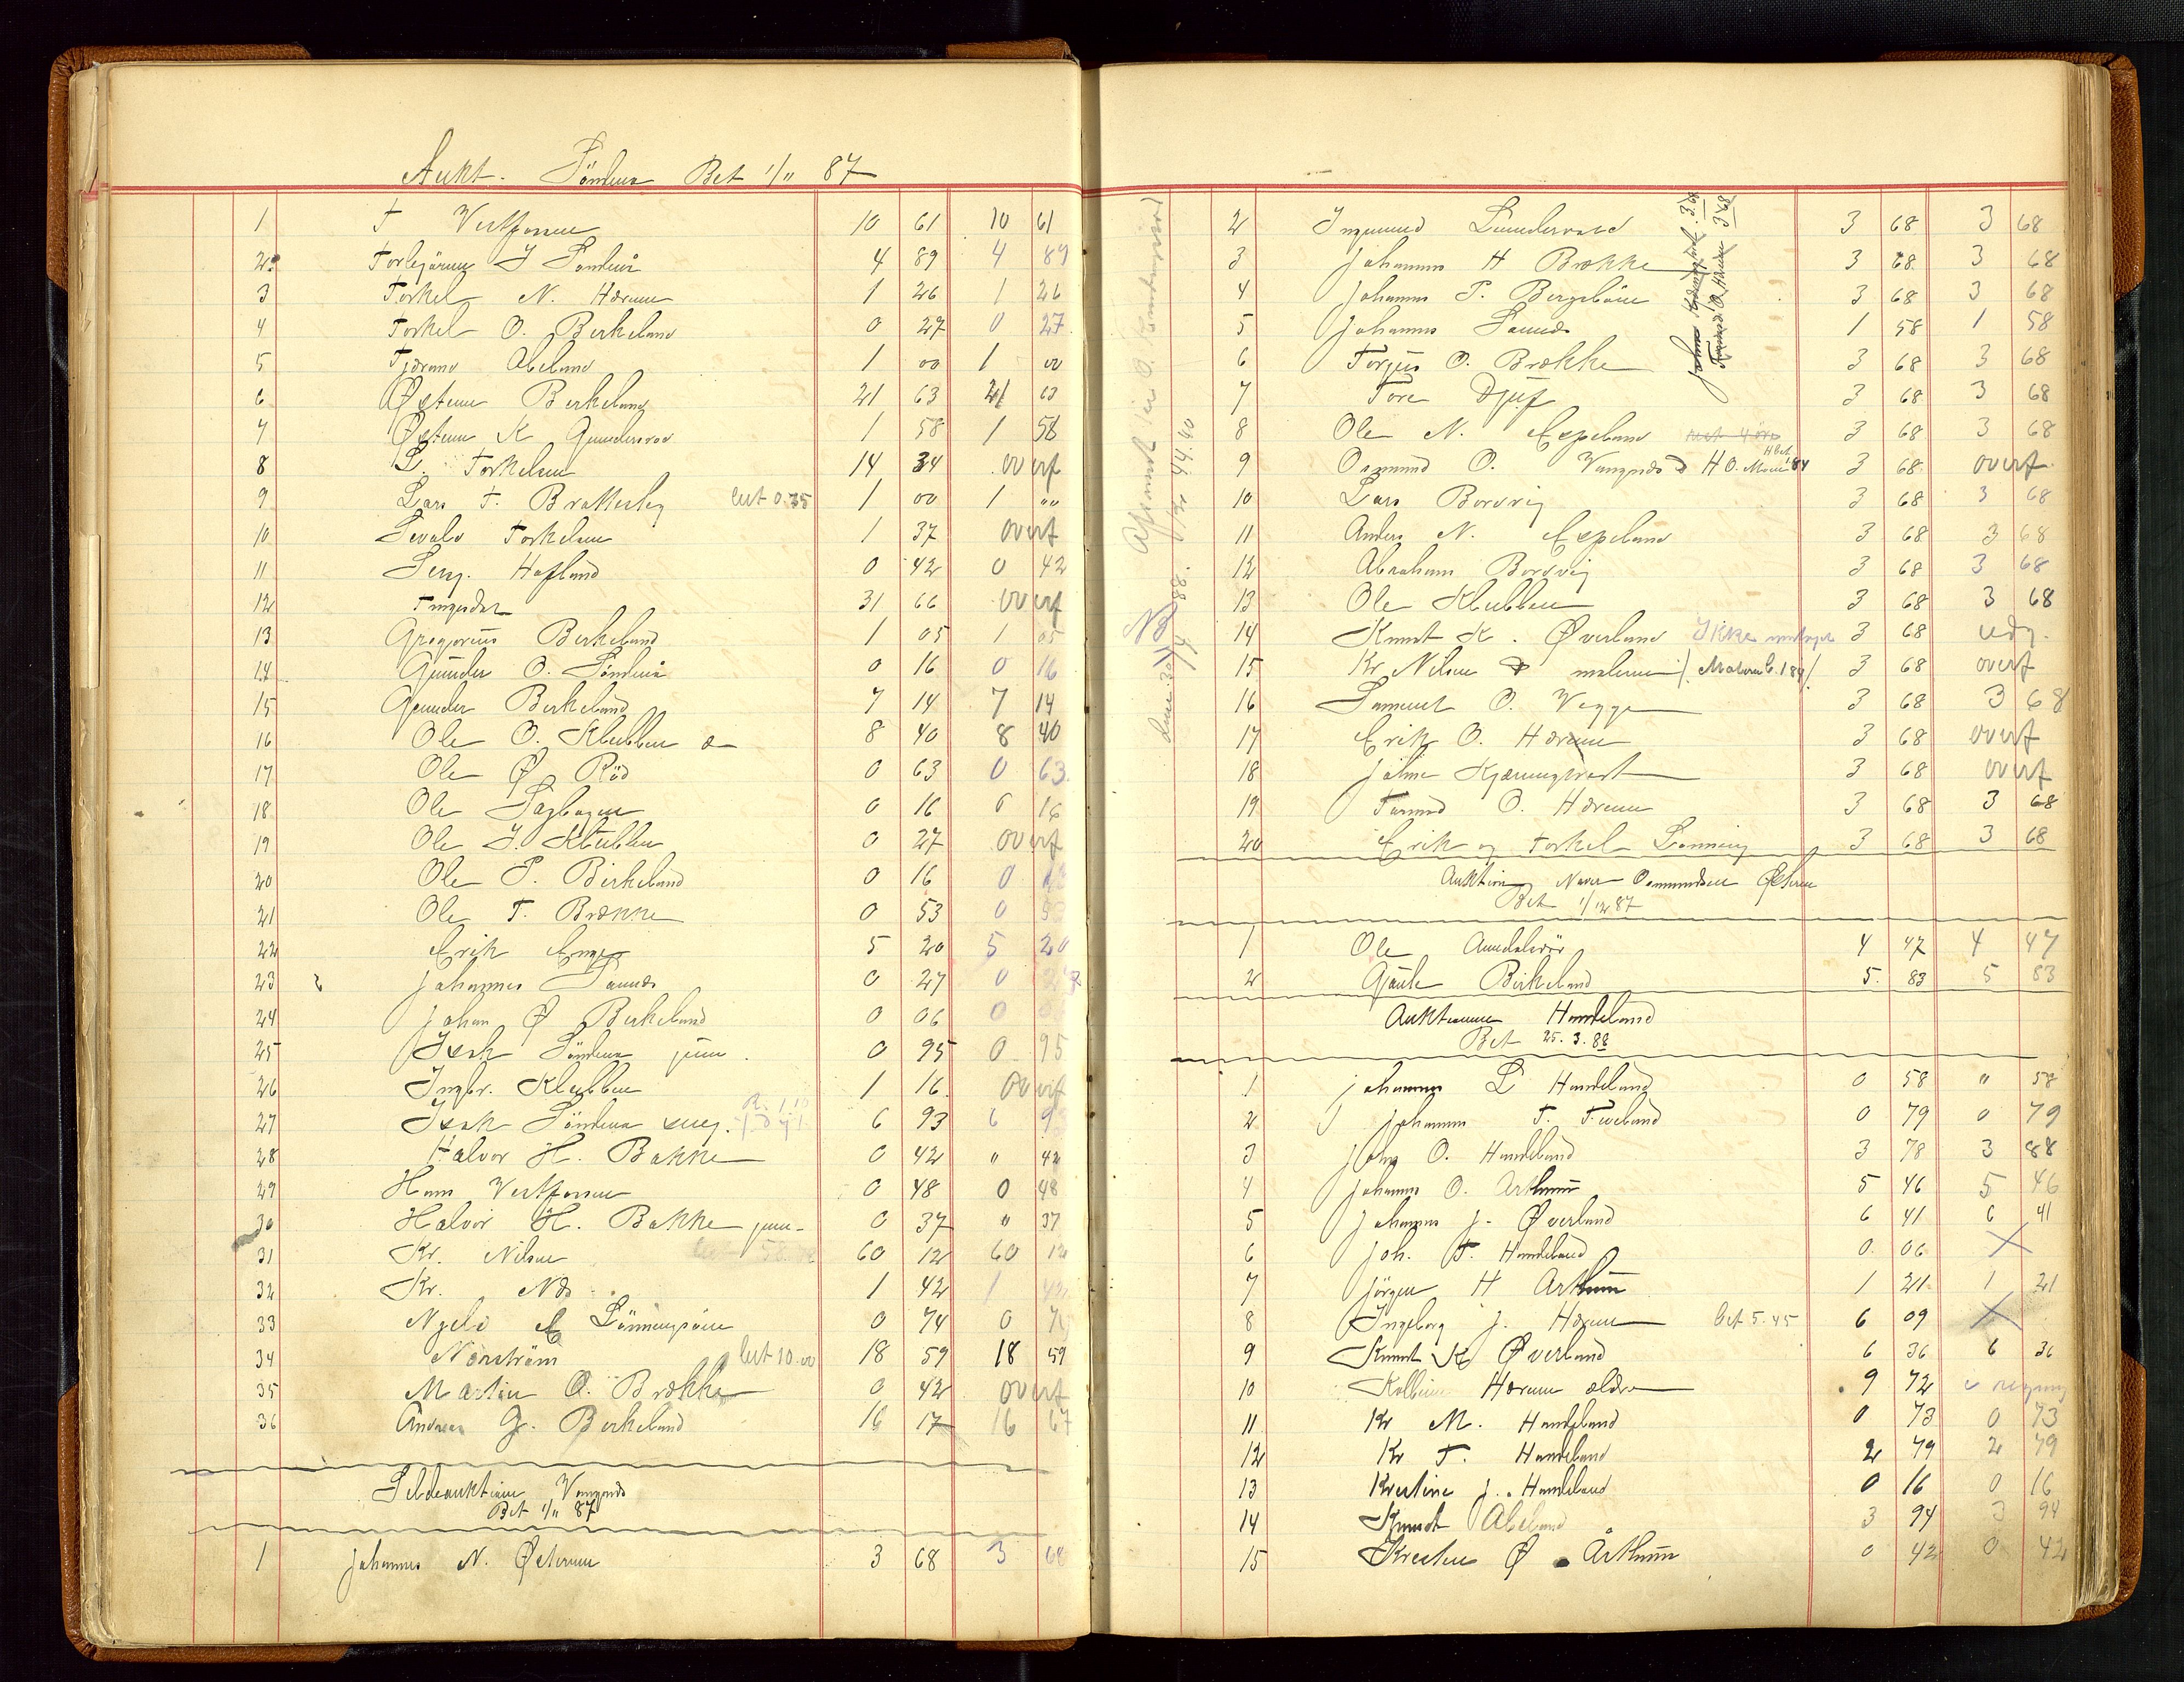 Aukt. Söndenå Bet 1/11 87
1 T Vestfossen 10 61 10 61
2 Torbjörn I Söndenå 4 89 4 89
3 Torkel N. Hærum 1 26 1 26
4 Torkel O. Berkeland 0 27 0 27
5 Tjærand Abeland 1 00 1 00
6 Østen Berkeland 21 63 21 63
7 Østen K Gundersrod 1 58 1 58
8 L. Torkelsen 14 34 overf
9 Lars T. Bratterlig bet 0.35 1 00 1 ""
10 Sevald Torkelsen 1 37 overf
11 Serg. Hafland 0 42 0 42
12 31 66 overf
13 Gregorius Berkeland 1 05 1 05
14 Gunder O. Söndenå 0 16 0 16
15 Gunder Berkeland 7 14 7 14
16 Ole O. Klubben 8 40 8 40
17 Ole Ø Röd 0 63 0 63
18 Ole 0 16 0 16
19 Ole I. Klubben 0 27 overf
20 Ole P. Birkeland 0 16 0
21 Ole T. Brække 0 53 0 53
22 Erik Enge 5 20 5 20
23 Johannes Saunes 0 27 0 27
24 Johan Ø Berkeland 0 06 0
25 Isak Söndena jun. 0 95 0 95
26 Ingbr. Klubben 1 16 overf
27 Isak Söndena 6 93 6 93
28 Halvor H. Bakke 0 42 " 42
29 Hans Vestfossen 0 48 0 48
30 Halvor H. Bakke jun. 0 37 " 37
31 Kr. Nilsen 60 12 60 12
32 Kr. Næs 1 42 1 42
33 Njeld E Lönningsåen 0 74 0 74
34 Norström bet 10.00 18 59 18 59
35 Martin O. Brække 0 42 overf
36 Andreas G. Berkeland 16 17 16 67
Sildeauktion Vangnæs
Bet 1/11 87
1 Johannes N. Østerun 3 68 3 68
2 Ingemund Lundersrod 3 68 3 68
3 Johannes H Brække 3 68 3 68
4 Johannes P. Bergslöne 3 68 3 68
5 Johannes Saunes 1 58 1 58
6 Torjus O. Brække 3 68 3 68
7 Tore Djuf 3 68 3 68
8 Ole N. Espeland 3 68 3 68
9 Osmund O. Vangnæs H O. Moen 84 3 68 overf
10 Lars Bordvig 3 68 3 68
11 Anders N. Espeland 3 68 3 68
12 Abraham Bordvig 3 68 3 68
13 Ole Klubben 3 68 3 68
14 Knut K. Øverland Ikke modtaget 3 68 udg.
15 Kr Nilsen maleren 3 68 overf
16 Samuel O. Vegge 3 68 3 68
17 Erik O. Hærum 3 68 overf
18 John Kjærringvest 3 68 overf
19 Tormod O. Hærum 3 68 3 68
20 Erik og Torkel Lönning 3 68 3 68
Auktion Osmundsen Østerun
Bet 1/12 87
1 Ole 4 47 4 47
2 Gjaule Birkeland 5. 83 5 83
Auktionen Handeland
Bet 25. 3. 88
1 Johannes L Handeland 0 58 " 58
2 Johannes T. Tveland 0 79 0 79
3 John O. Handeland 3 78 3 88
4 Johannes O. Arthun 5 46 5 46
5 Johannes J. Øverland 6 41 6 41
6 Joh. T. Handeland 0. 06 X
7 Jörgen H Arthun 1 21 1 21
8 Ingeborg J. Hærum bet 5.45 6 09 X
9 Knut K Øverland 6 36 6 36
10 Kolbein Hærum ældre 9 72 regning
11 Kr M. Handeland 0 73 0 73
12 Kr T. Handeland 2 79 2 79
13 Kristine J. Handeland 0 16 0 16
14 Knudt Abeland 3 94 3 94
15 Kresten Ø Arthun 0 42 0 42